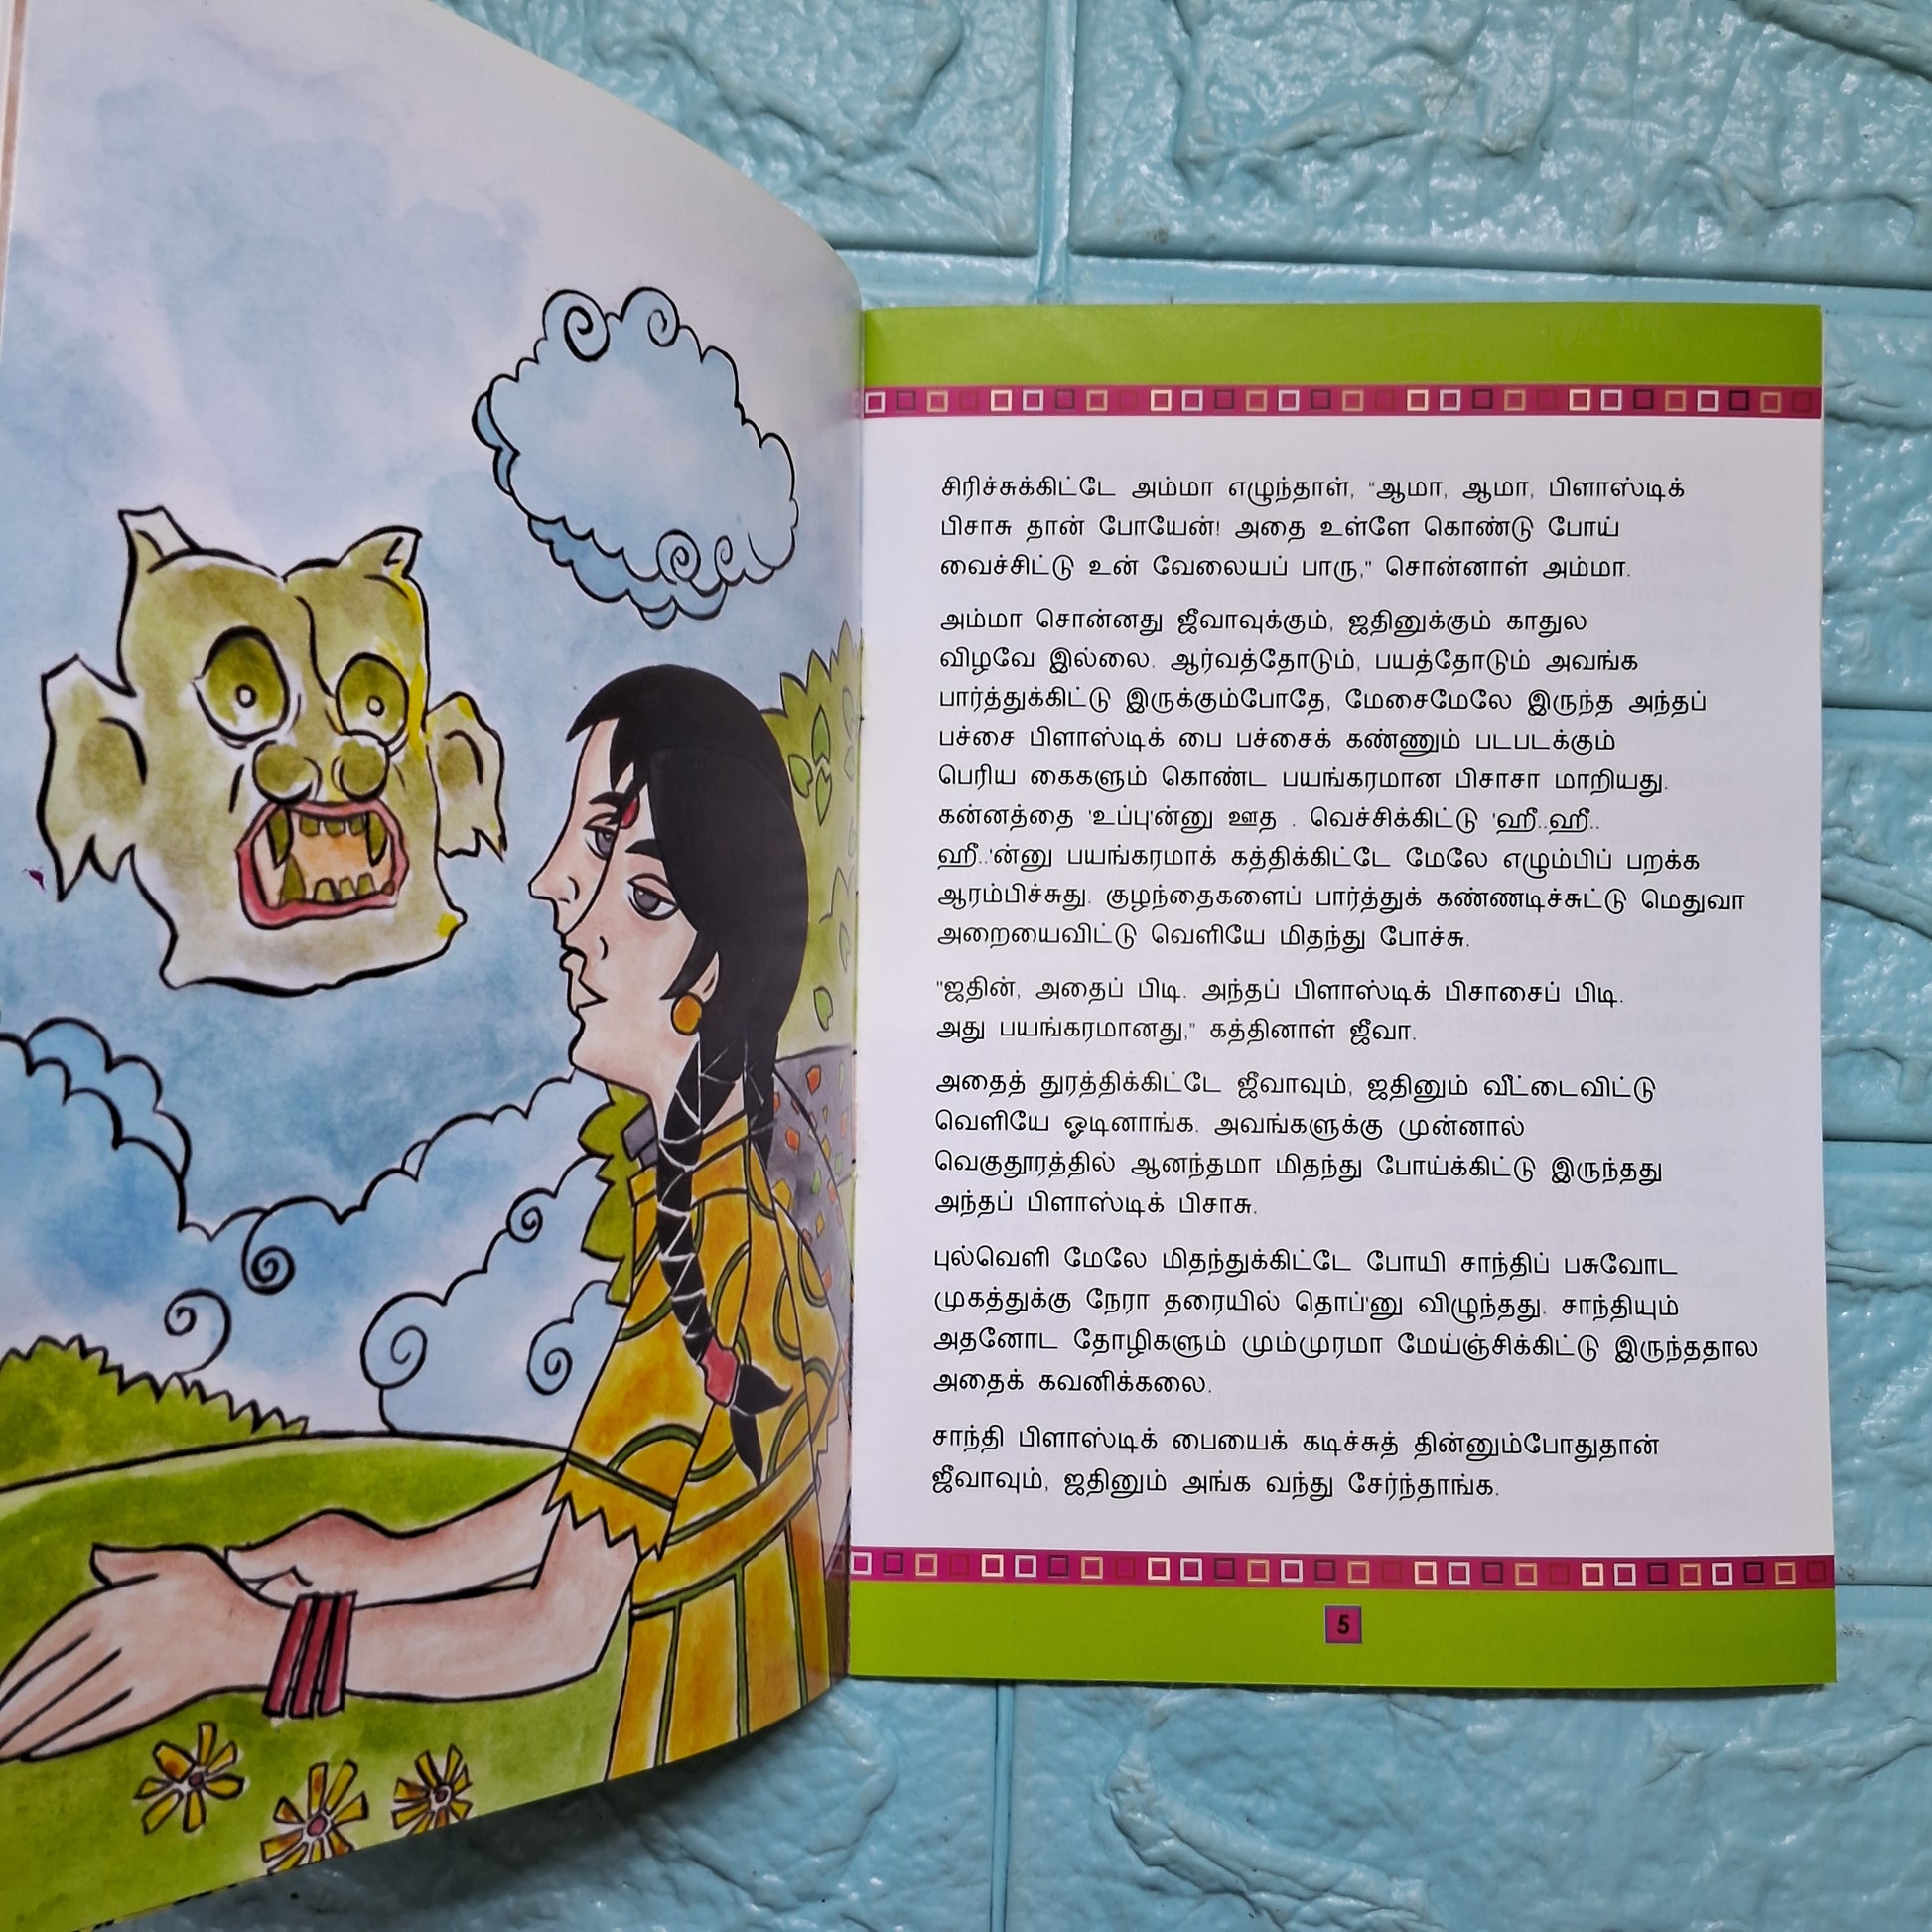 சிரிச்சுக்கிட்டே அம்மா எழுந்தாள், "ஆமா, ஆமா, பிளாஸ்டிக்
பிசாசு தான் போயேன்! அதை உள்ளே கொண்டு போய்
வைச்சிட்டு உன் வேலையப் பாரு," சொன்னாள் அம்மா.
அம்மா சொன்னது ஜீவாவுக்கும், ஜதினுக்கும் காதுல
விழவே இல்லை. ஆர்வத்தோடும், பயத்தோடும் அவங்க
பார்த்துக்கிட்டு இருக்கும்போதே, மேசைமேலே இருந்த அந்தப்
பச்சை பிளாஸ்டிக் பை பச்சைக் கண்ணும் படபடக்கும்
பெரிய கைகளும் கொண்ட பயங்கரமான பிசாசா மாறியது.
கன்னத்தை 'உப்பு'ன்னு ஊத . வெச்சிக்கிட்டு 'ஹீ..ஹீ..
ஹீ..'ன்னு பயங்கரமாக் கத்திக்கிட்டே மேலே எழும்பிப் பறக்க
ஆரம்பிச்சுது. குழந்தைகளைப் பார்த்துக் கண்ணடிச்சுட்டு மெதுவா
அறையைவிட்டு வெளியே மிதந்து போச்சு.
"ஜதின், அதைப் பிடி. அந்தப் பிளாஸ்டிக் பிசாசைப் பிடி.
அது பயங்கரமானது," கத்தினாள் ஜீவா.
அதைத் துரத்திக்கிட்டே ஜீவாவும், ஜதினும் வீட்டைவிட்டு
வெளியே ஓடினாங்க. அவங்களுக்கு முன்னால்
வெகுதூரத்தில் ஆனந்தமா மிதந்து போய்க்கிட்டு இருந்தது
அந்தப் பிளாஸ்டிக் பிசாசு.
புல்வெளி மேலே மிதந்துக்கிட்டே போயி சாந்திப் பசுவோட
முகத்துக்கு நேரா தரையில் தொப்'னு விழுந்தது. சாந்தியும்
அதனோட தோழிகளும் மும்முரமா மேய்ஞ்சிக்கிட்டு இருந்ததால
அதைக் கவனிக்கலை.
சாந்தி பிளாஸ்டிக் பையைக் கடிச்சுத் தின்னும்போதுதான்
ஜீவாவும், ஜதினும் அங்க வந்து சேர்ந்தாங்க.
5